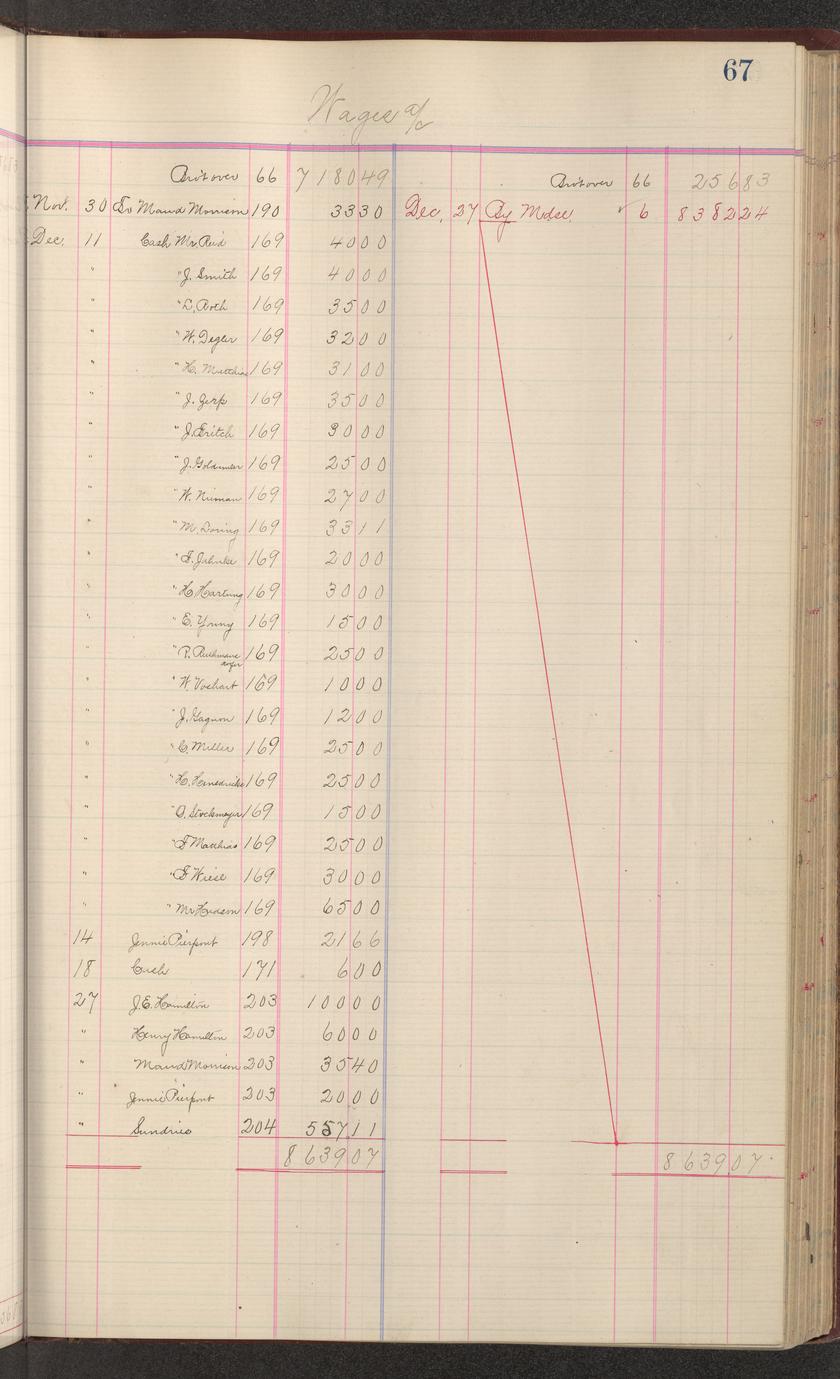 67
Wages a/c
Bro't over 66 7180 49 Bro't over 66 256 83
Nov. 30 To Maud Morrison 190 33 30 Dec. 27 By Mdse 6 8382 24
Dec. 11 Cash Mr. Reid 169 40 00
" " J. Smith 169 40 00
" " L. Roth 169 35 00
" " W. Degler 169 32 00
" " H. Matthias 169 31 00
" " J. Gerp 169 35 00
" " J. Britch 169 30 00
" " J. 169 25 00
" " W. Nieman 169 27 00
" " M. Doring 169 33 11
" " F. Jahnke 169 20 00
" " H. Hartung 169 30 00
" " E. Young 169 15 00
" " P. 169 25 00
" " W. Voshart 169 10 00
" " J. Gagnon 169 12 00
" " C. Miller 169 25 00
" " H. Hendricks 169 25 00
" " O. Stockmeyer 169 15 00
" " F Matthias 169 25 00
" " F Wiese 169 30 00
" " Mr Hudson 169 65 00
14 Jennie Pierpont 198 21 66
18 Cash 171 6 00
27 J.E. Hamilton 203 100 00
" Henry Hamilton 203 60 00
" Maud Morrison 203 35 40
" Jennie Pierpont 203 20 00
" Sundries 204 557 11
8639 07 8639 07